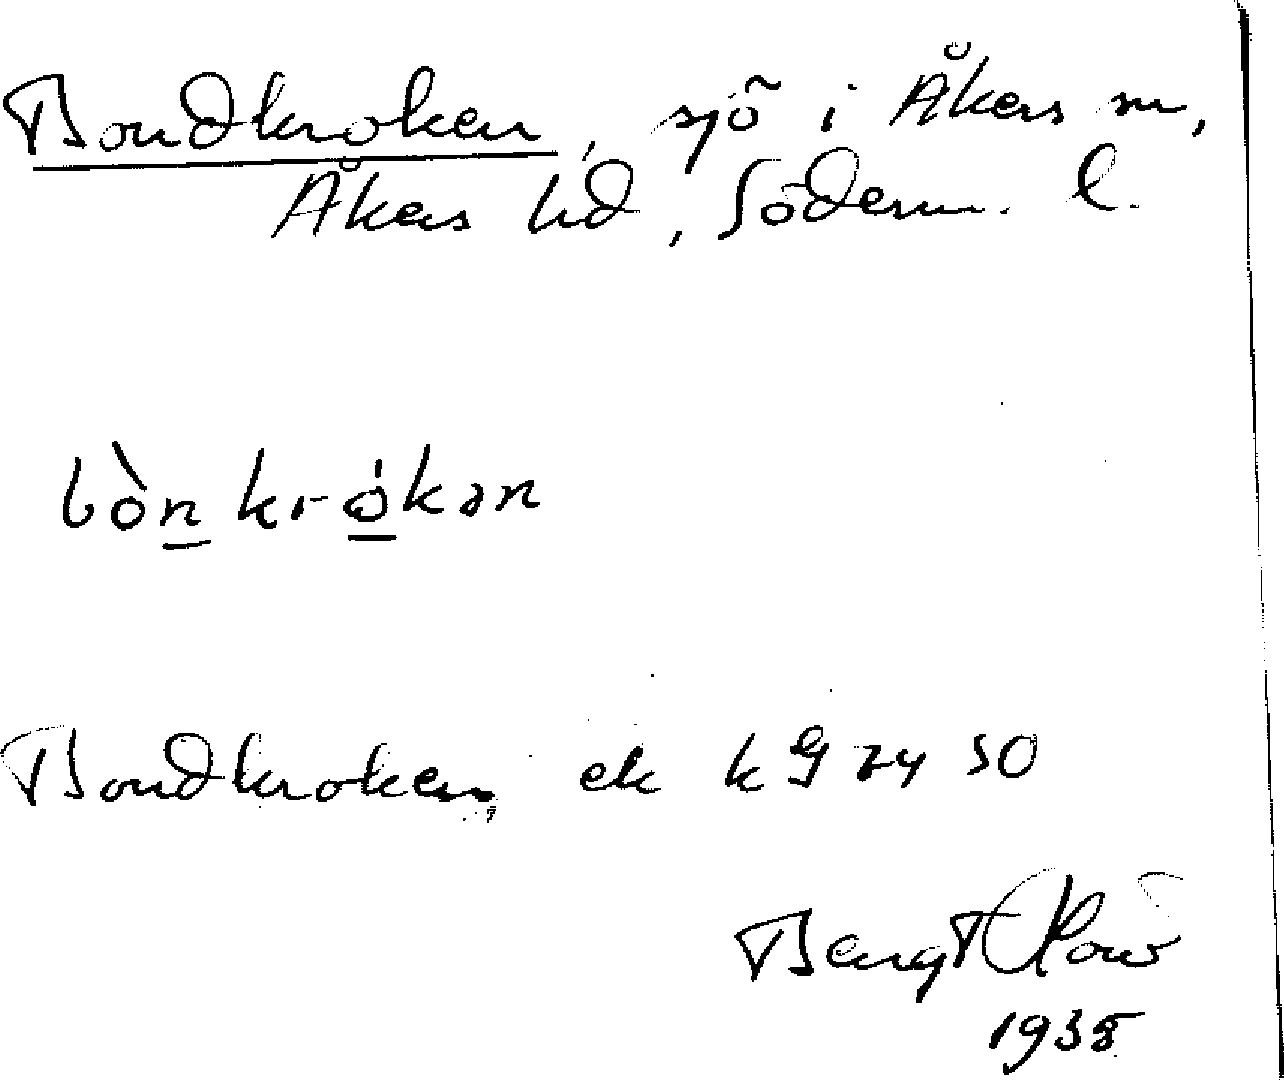 Bondkroken, sjö i Åkers sn,
Åkers hd, Söderm. l.
bòn krókən
Bondkroken ek kG 24 SO
Bengt
1935